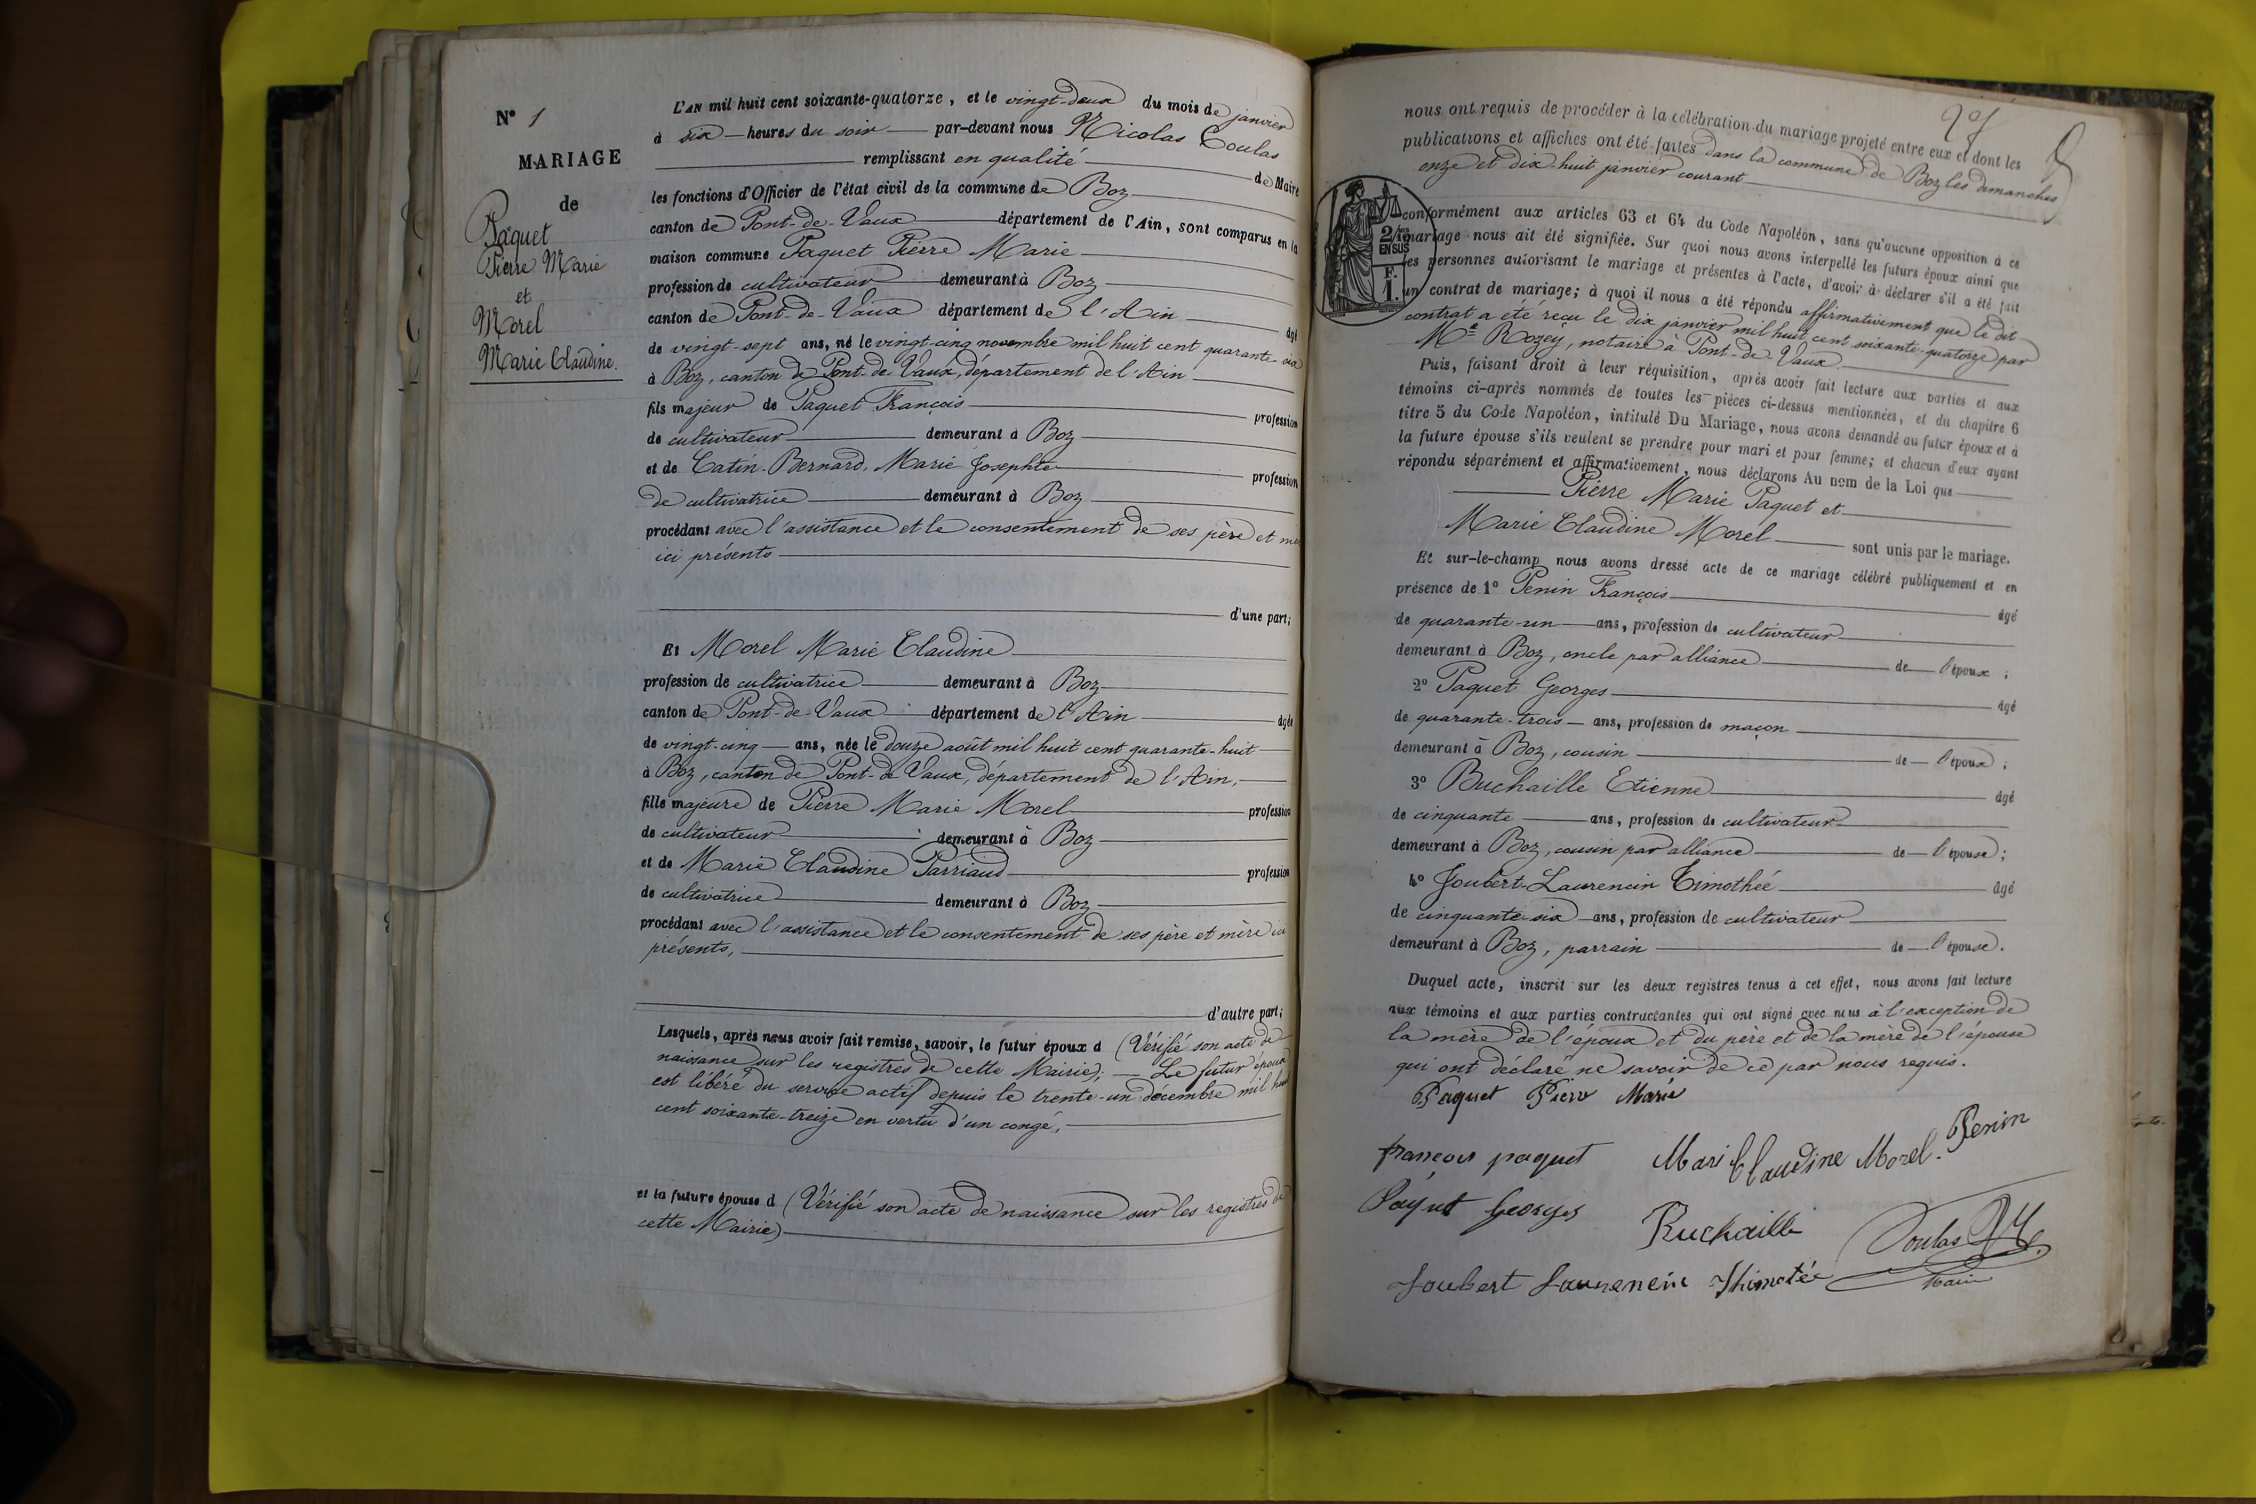 N° 1
MARIAGE
de
Paquet
Pierre Marie
et
Morel
Marie Claudine.
L'AN mil huit cent soixante-quatorze, et le vingt-deux du mois de janvier
à six heures du soir par-devant nous Nicolas Coulas
remplissant en qualité de Maire
les fonctions d'Officier de l'état civil de la commune de Boz
canton de Pont-de-Vaux département de l'Ain, sont comparus en la
maison commune Paquet Pierre Marie
profession de cultivateur demeurant à Boz
canton de Pont-de-Vaux département de l'Ain âgé
de vingt-sept ans, né le vingt-cinq novembre mil huit cent quarante-six
à Boz, canton de Pont-de-Vaux, département de l'Ain
fils majeur de Paquet François profession
de cultivateur demeurant à Boz
et de Catin-Bernard, Marie Josephte profession
de cultivatrice demeurant à Boz
procédant avec l'assistance et le consentement de ses père et mère
ici présents
d'une part;
Et Morel Marie Claudine
profession de cultivatrice demeurant à Boz
canton de Pont-de-Vaux département de l'Ain âgée
de vingt-cinq ans, née le douze août mil huit cent quarante-huit
à Boz, canton de Pont-de-Vaux, département de l'Ain,
fille majeure de Pierre Marie Morel profession
de cultivateur demeurant à Boz
et de Marie Claudine Parriaud profession
de cultivatrice demeurant à Boz
procédant avec l'assistance et le consentement de ses père et mère ici
présents,
d'autre part;
Lesquels, après nous avoir fait remise, savoir, le futur époux d (Vérifié son acte de
naissance sur les registres de cette Mairie); — Le futur époux
est libéré du service actif depuis le trente-un décembre mil huit
cent soixante-treize en vertu d'un congé,
et la future épouse d (Vérifié son acte de naissance sur les registres de
cette Mairie)
nous ont requis de procéder à la célébration du mariage projeté entre eux et dont les
publications et affiches ont été faites dans la commune de Boz les dimanches
onze et dix-huit janvier courant
2/10mes
EN SUS
F.
1.
conformément aux articles 63 et 64 du Code Napoléon, sans qu'aucune opposition à ce
mariage nous ait été signifiée. Sur quoi nous avons interpellé les futurs époux ainsi que
les personnes autorisant le mariage et présentes à l'acte, d'avoir à déclarer s'il a été fait
un contrat de mariage; à quoi il nous a été répondu affirmativement que le dit
contrat a été reçu le dix janvier mil huit cent soixante-quatorze par
Me Rozey, notaire à Pont-de-Vaux.
Puis, faisant droit à leur réquisition, après avoir fait lecture aux parties et aux
témoins ci-après nommés de toutes les pièces ci-dessus mentionnées, et du chapitre 6
titre 5 du Code Napoléon, intitulé Du Mariage, nous avons demandé au futur époux et à
la future épouse s'ils veulent se prendre pour mari et pour femme; et chacun d'eux ayant
répondu séparément et affirmativement, nous déclarons Au nom de la Loi que
Pierre Marie Paquet et
Marie Claudine Morel sont unis par le mariage.
Et sur-le-champ nous avons dressé acte de ce mariage célébré publiquement et en
présence de 1° Penin François âgé
de quarante-un ans, profession de cultivateur
demeurant à Boz, oncle par alliance de l'époux;
2° Paquet Georges âgé
de quarante-trois ans, profession de maçon
demeurant à Boz, cousin de l'époux;
3° Buchaille Etienne âgé
de cinquante ans, profession de cultivateur
demeurant à Boz, cousin par alliance de l'épouse;
4° Joubert-Laurencin Timothée âgé
de cinquante-six ans, profession de cultivateur
demeurant à Boz, parrain de l'épouse.
Duquel acte, inscrit sur les deux registres tenus à cet effet, nous avons fait lecture
aux témoins et aux parties contractantes qui ont signé avec nous à l'exception de
la mère de l'époux et du père et de la mère de l'épouse
qui ont déclaré ne savoir de ce par nous requis.
Paquet Pierre Marie
francois paquet Mari Claudine Morel. Penin
Paquet Georges Buchaille Coulas
Joubert Laurencin Thimotée Maire